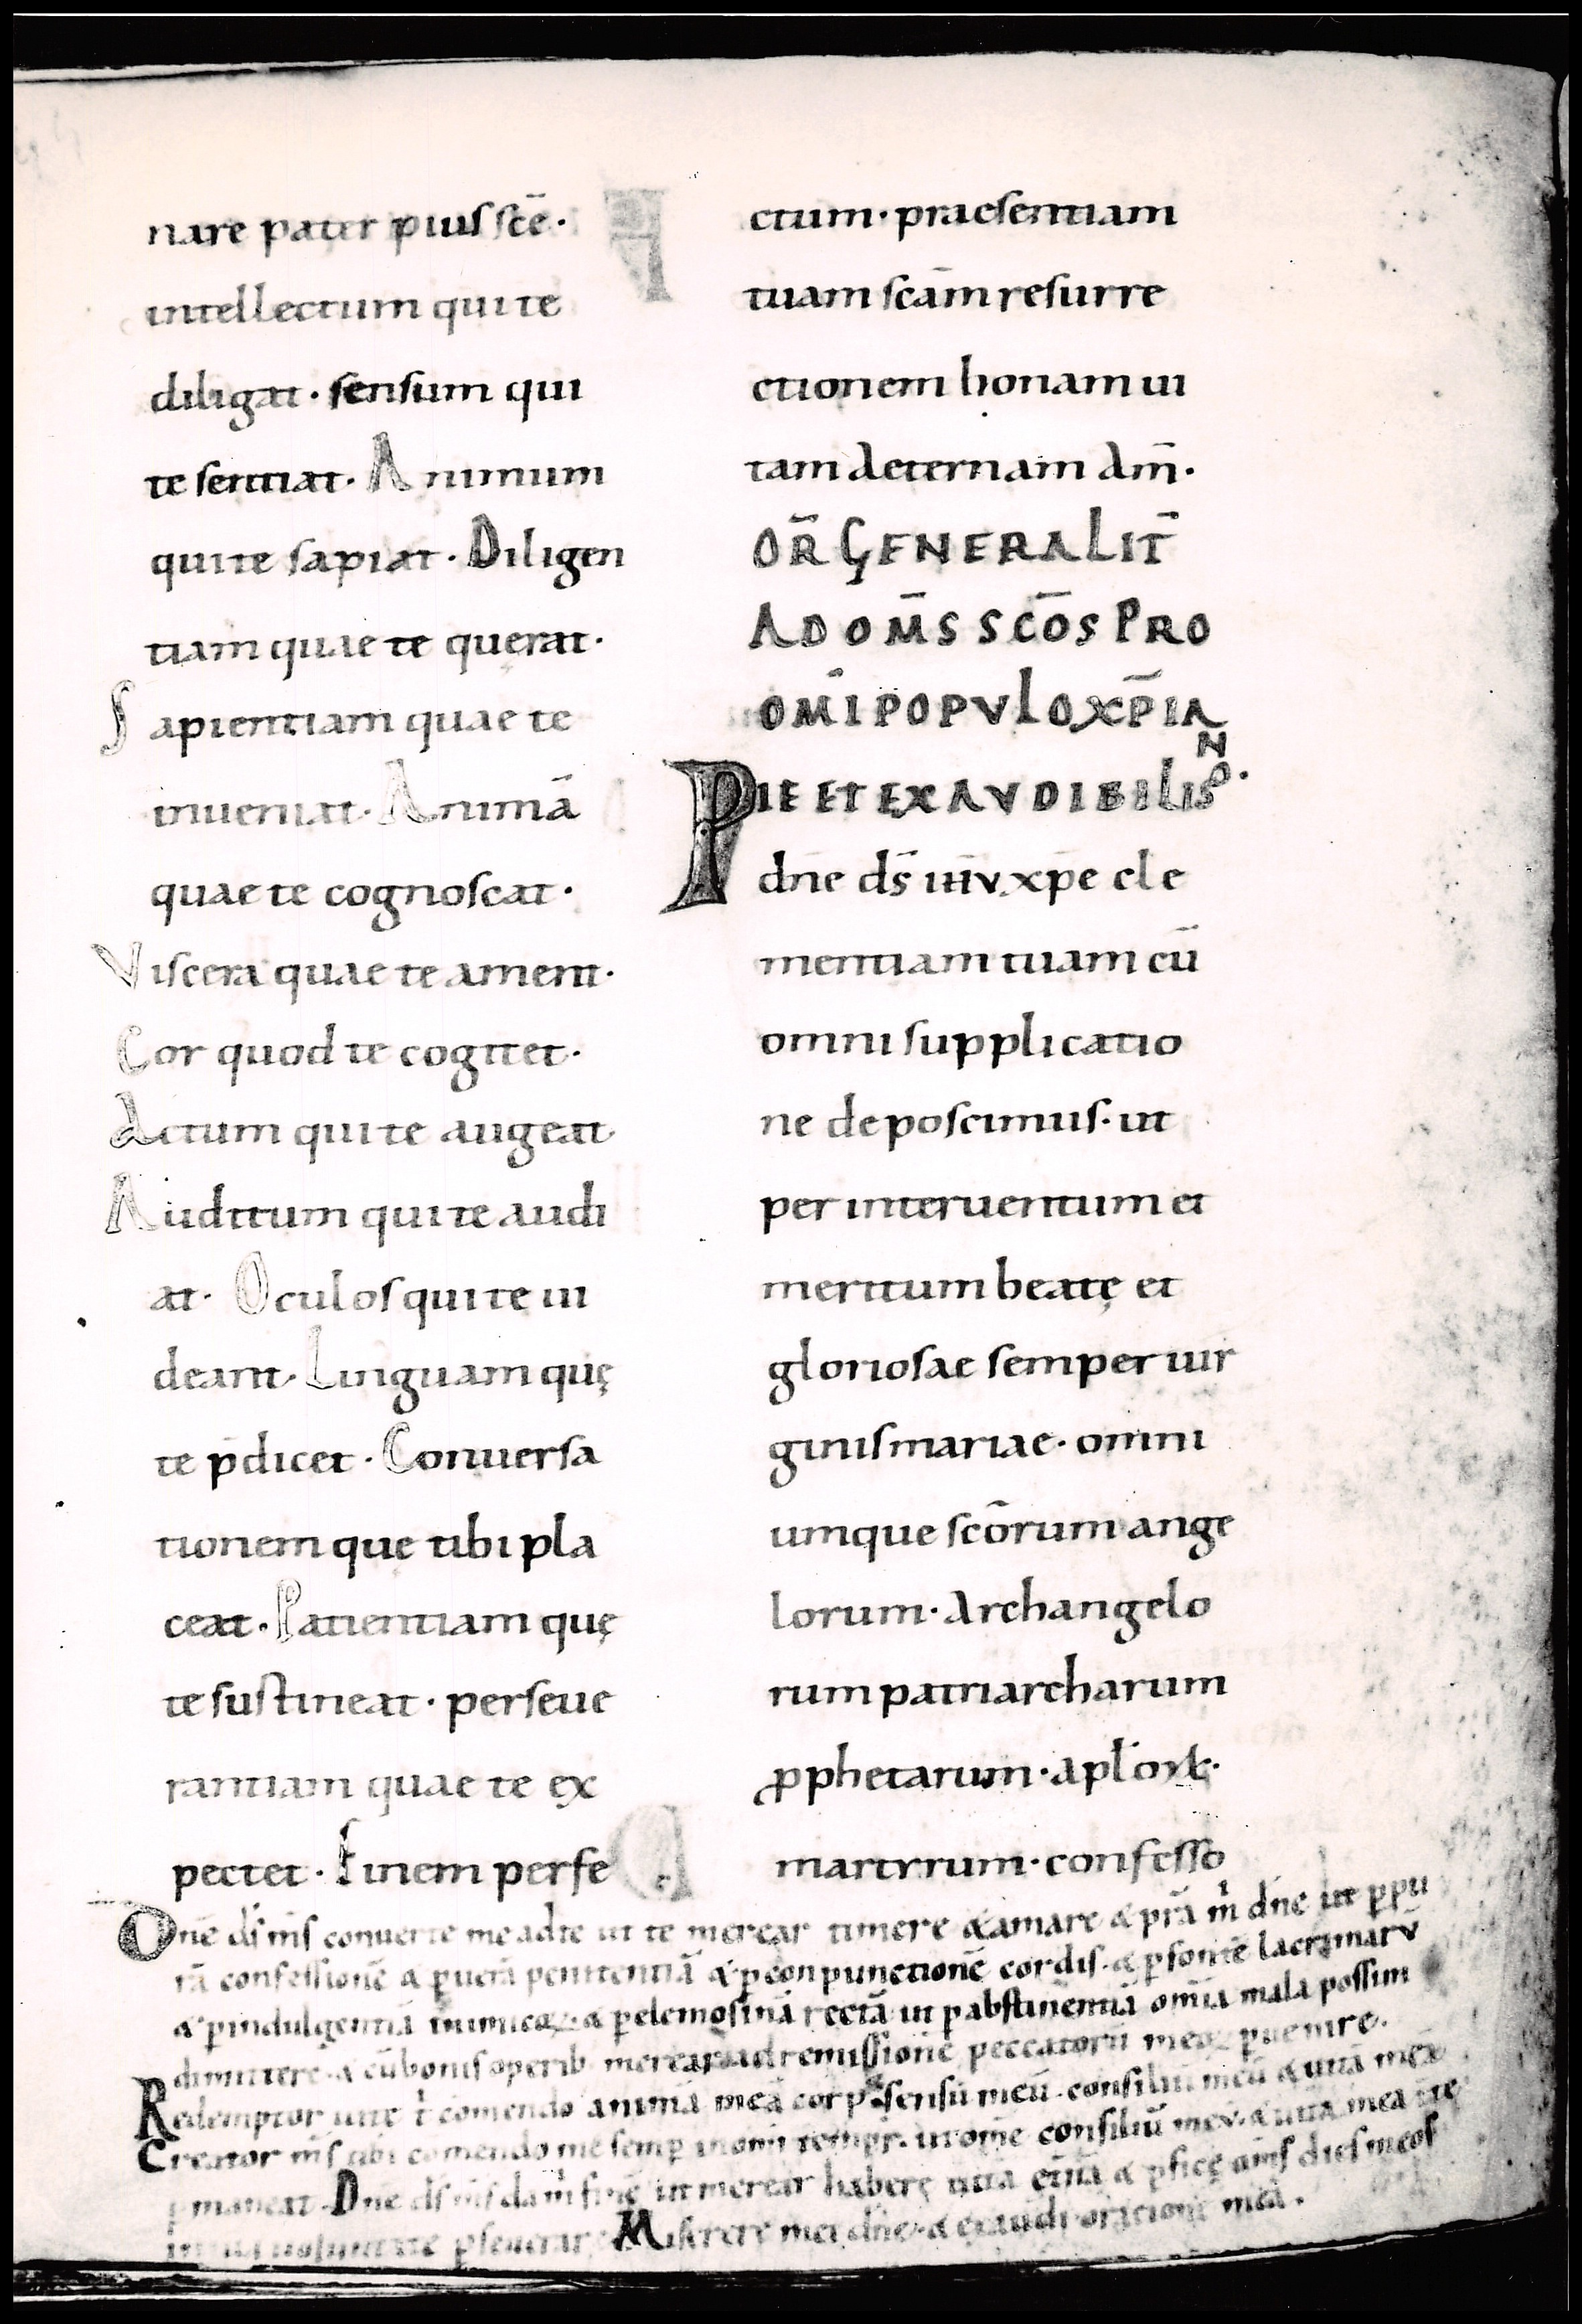 nare pater pius sc̄e·
intellectum qui te
diligat· sensum qui
te sentiat· Animum
qui te sapiat· Diligen
tiam quae te querat·
Sapientiam quae te
inueniat· Animā
quae te cognoscat·
Viscera quae te ament·
Cor quod te cogitet·
Actum qui te augeat·
Auditum qui te audi
at· Oculos qui te ui
deant· Linguam quę
te p̄dicet· Conuersa
tionem que tibi pla
ceat· Patientiam quę
te sustineat· perseue
rantiam quae te ex
pectet· Finem perfe
ctum· praesentiam
tuam sc̄am resurre
ctionem bonam ui
tam aeternam am̄·
OR̄ GENERALIT̄
AD OM̄S SC̄OS PRO
OM̄I POPVLO XP̄IAN
PIE ET EXAVDIBILIS
dn̄e ds̄ ih̄v xp̄e cle
mentiam tuam cū
omni supplicatio
ne deposcimus· ut
per interuentum et
meritum beatę et
gloriosae semper uir
ginis mariae· omni
umque sc̄orum ange
lorum· Archangelo
rum patriarcharum
ꝓphetarum· apl̄oꝝ·
martyrum· confesso
Dn̄e ds̄ ms̄ conuerte me ad te ut te merear timere & amare & p̄rā m̄ dn̄e ut ꝑpu
rā confessionē & ꝑuerā penitentiā & ꝑconpunctionē cordis· & ꝑfontē lacrimarū
& ꝑindulgentiā inimicoꝝ· & ꝑelemosinā rectā ut ꝑabstinentiā om̄ia mala possim
dimittere· & cū bonis operib merear ad remissionē peccatorū meoꝝ ꝑuenire·
Redemptor animā meā corp sensū meū· consiliū meū & uitā meā
Creator ms̄ tibi comendo me semꝑ in om̄i tempr· in om̄e consiliū & uitā mea
ꝑmaneat· Dn̄e ds̄ ms̄ da m̄ finē ut merear habere uitā et̄nā & ꝑficę dies meos
ꝑseuerar· Miserere mei dn̄e· & exaudi orationē meā·